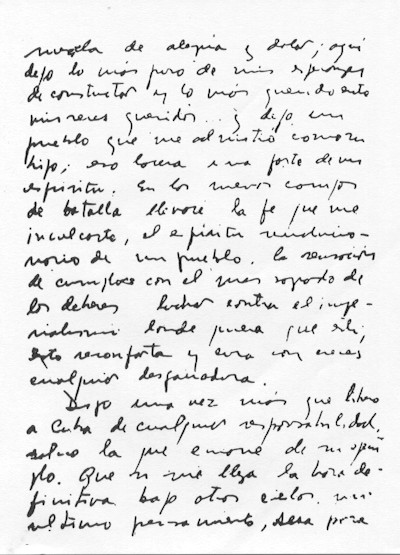 mezcla de alegria y dolor; aquí
dejo lo más puro de mis esperanzas
de constructor y lo más querido entre
mis seres queridos... y dejo un
pueblo que me admitió como un
hijo; eso lacera una parte de mi
espiritu. En los nuevos campos
de batalla llevaré la fe que me
inculcaste, el espiritu revolucio-
nario de mi pueblo, la sensación
de cumplir con el mas sagrado de
los deberes luchar contra el impe-
rialismo donde quiera que esté,
esto reconforta y cura con creces
cualquier desgarradura.
Digo una vez más que libero
a Cuba de cualquier responsabilidad,
salvo la que emane de su ejem-
plo. Que si me llega la hora de-
finitiva bajo otros cielos, mi
ultimo pensamiento, sera para